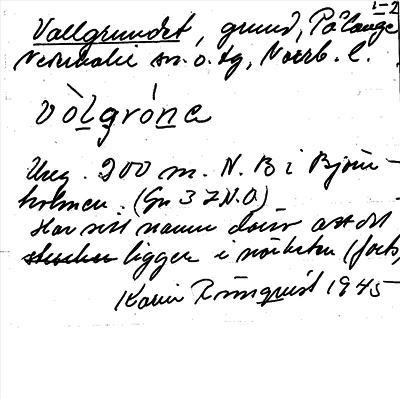 1-2
Vallgrundet, grund, På Långe
Nederkalix sn. o. tg, Norrb. l.
vòlgróne
Ung. 200 m. N. B i Björn-
holmen. (Gn 3 ZN.O)
Har sitt namn därav att det
ligger i närheten (forts,
Karin Rönnqvist 1945